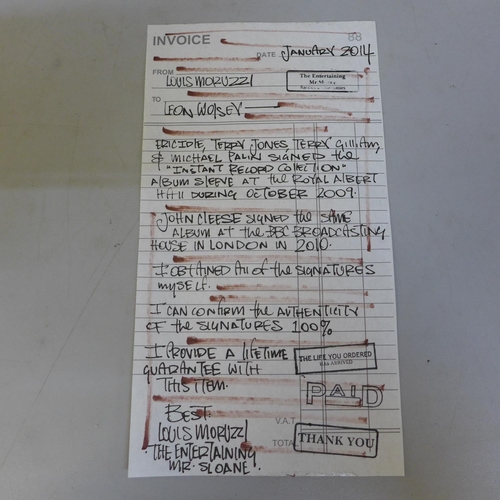 INVOICE 88
DATE JANUARY 2014
FROM LOUIS MORUZZI
The Entertaining
TO LEON WOLSEY
ERIC IDLE, TERRY JONES, TERRY GILLIAM,
& MICHAEL PALIN SIGNED the
"INSTANT RECORD COLLECTION"
ALBUM SLEEVE AT the ROYAL ALBERT
HALL DURING OCTOBER 2009.
JOHN CLEESE SIGNED the SAME
ALBUM AT the BBC BROADCASTING
HOUSE IN LONDON IN 2010.
I OBTAINED All OF the SIGNATURES
MYSELF.
I CAN CONFIRM the AUTHENTICITY
OF the SIGNATURES 100%
I PROVIDE A LIFETIME
GUARANTEE WITH
THIS ITEM.
THE LIFE YOU ORDERED
HAS ARRIVED
PAID
BEST.
LOUIS MORUZZI
THE ENTERTAINING
MR. SLOANE.
V.A.T.
TOTAL
THANK YOU